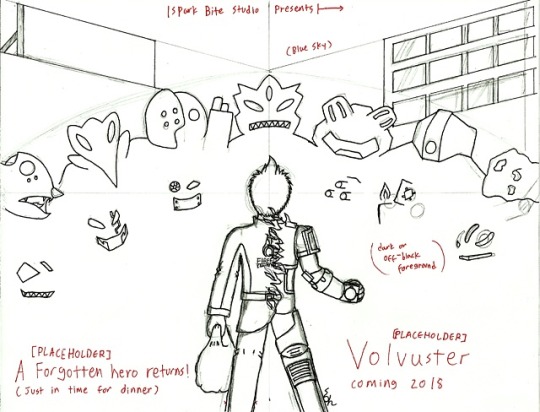 Spark Bite Studio Presents
(Blue Sky)
(dark or
off-black
foreground)
[PLACEHOLDER]
A Forgotten hero returns!
(Just in time for dinner)
[PLACEHOLDER]
Volvuster
coming 2018